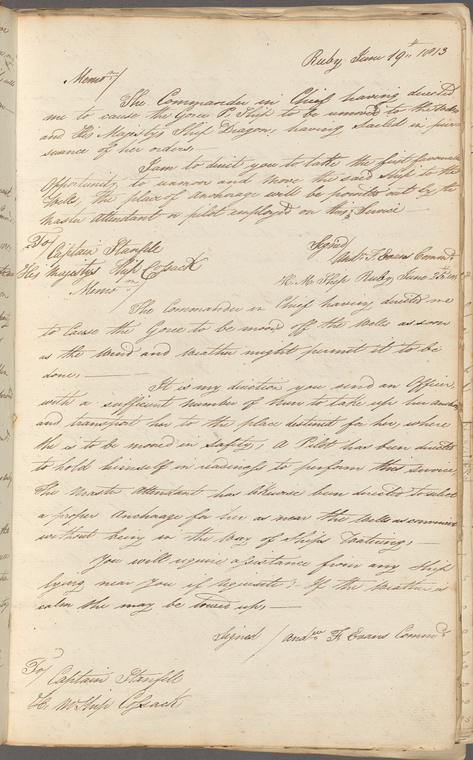 Ruby June 19th 1813
Memo/
The Commander in Chief having directed
me to cause the Goree P. Ship to be moved to the
and His Majesty's Ship Dragon, having Sailed in pur
suance of her orders,
I am to direct you to take the first favourable
Opportunity to unmoor and Move the said Ship to the
Wells, the place of anchorage will be pointed out by the
Master Attendant or pilot employed on this Service
To/ Captain Stanfile
His Majestys Ship Cossack
Signed/
Andw F. Evans Commdr
H. M. Ship Ruby June
Memo
The Commander in Chief having directed me
to Cause the Goree to be moved off the Wells as soon
as the Wind and Weather might permit it to be
done,
It is my direction you send an Officer,
with a sufficient number of Men to take up her anchor
and transport her to the place destined for her, where
She is to be moored in safety, A Pilot has been directed
to hold himself in readiness to perform this Service,
The Master Attendant has likewise been directed to select
a proper Anchorage for her as near the Wells as convenient
without being in the way of Ships Watering,
You will require assistance from any Ship
lying near you if requisite; If the Weather is
calm she may be towed up,
Signed / Andrew F. Evans Commdr
To/ Captain Stanfile
H. M. Ship Cossack